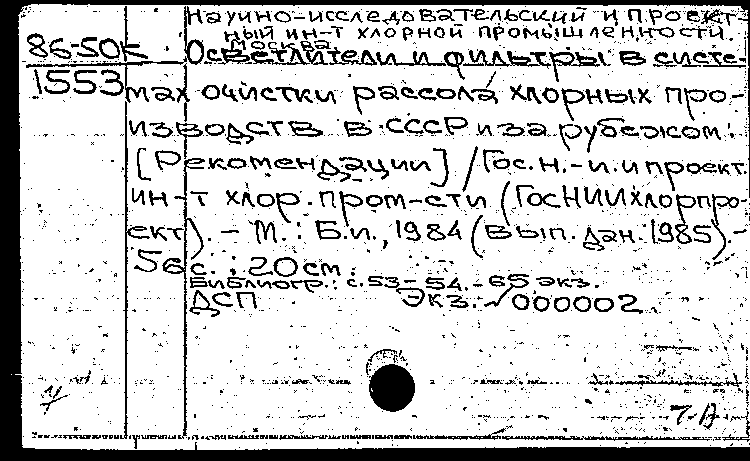 Научно-исследовательский и проект-
ный ин-т хлорной промышленности.
Москва.
86-50к Осветлители и фильтры в систе-
1553 мах очистки рассола хлорных про-
изводств в СССР и за рубежом:
[Рекомендации] / Гос. н.-и. и проект.
ин-т хлор. пром-сти (ГосНИИхлорпро-
ект). - М.: Б.и., 1984 (вып. дан. 1985). -
56 с.; 20 см.
Библиогр.: с. 53-54. - 65 экз.
ДСП экз. √000002